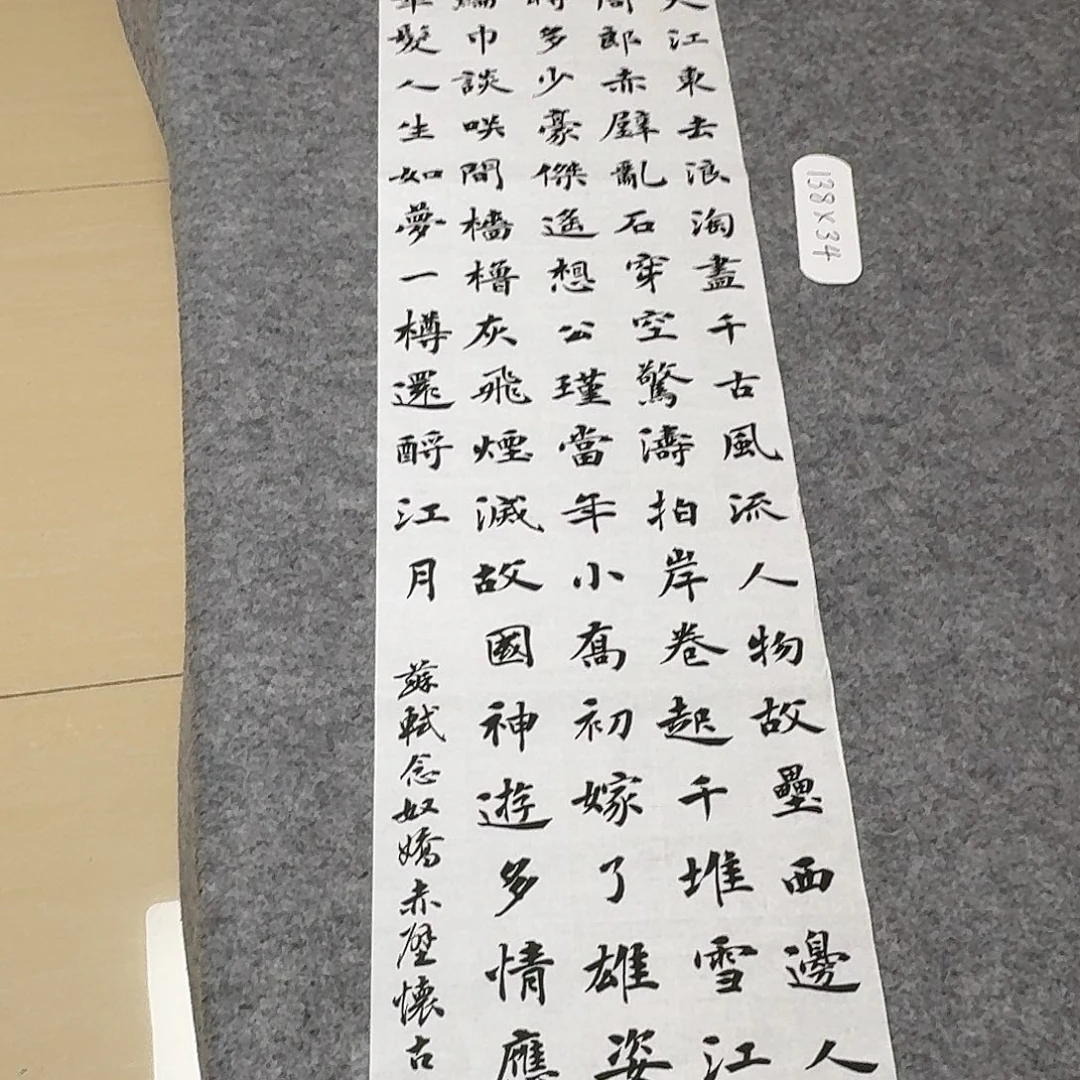 大江東去浪淘盡千古風流人物故壘西邊人
周郎赤壁亂石穿空驚濤拍岸卷起千堆雪江
時多少豪傑遙想公瑾當年小喬初嫁了雄姿
綸巾談咲間檣櫓灰飛煙滅故國神遊多情應
華髮人生如夢一樽還酹江月
蘇軾念奴嬌赤壁懷古
138×34